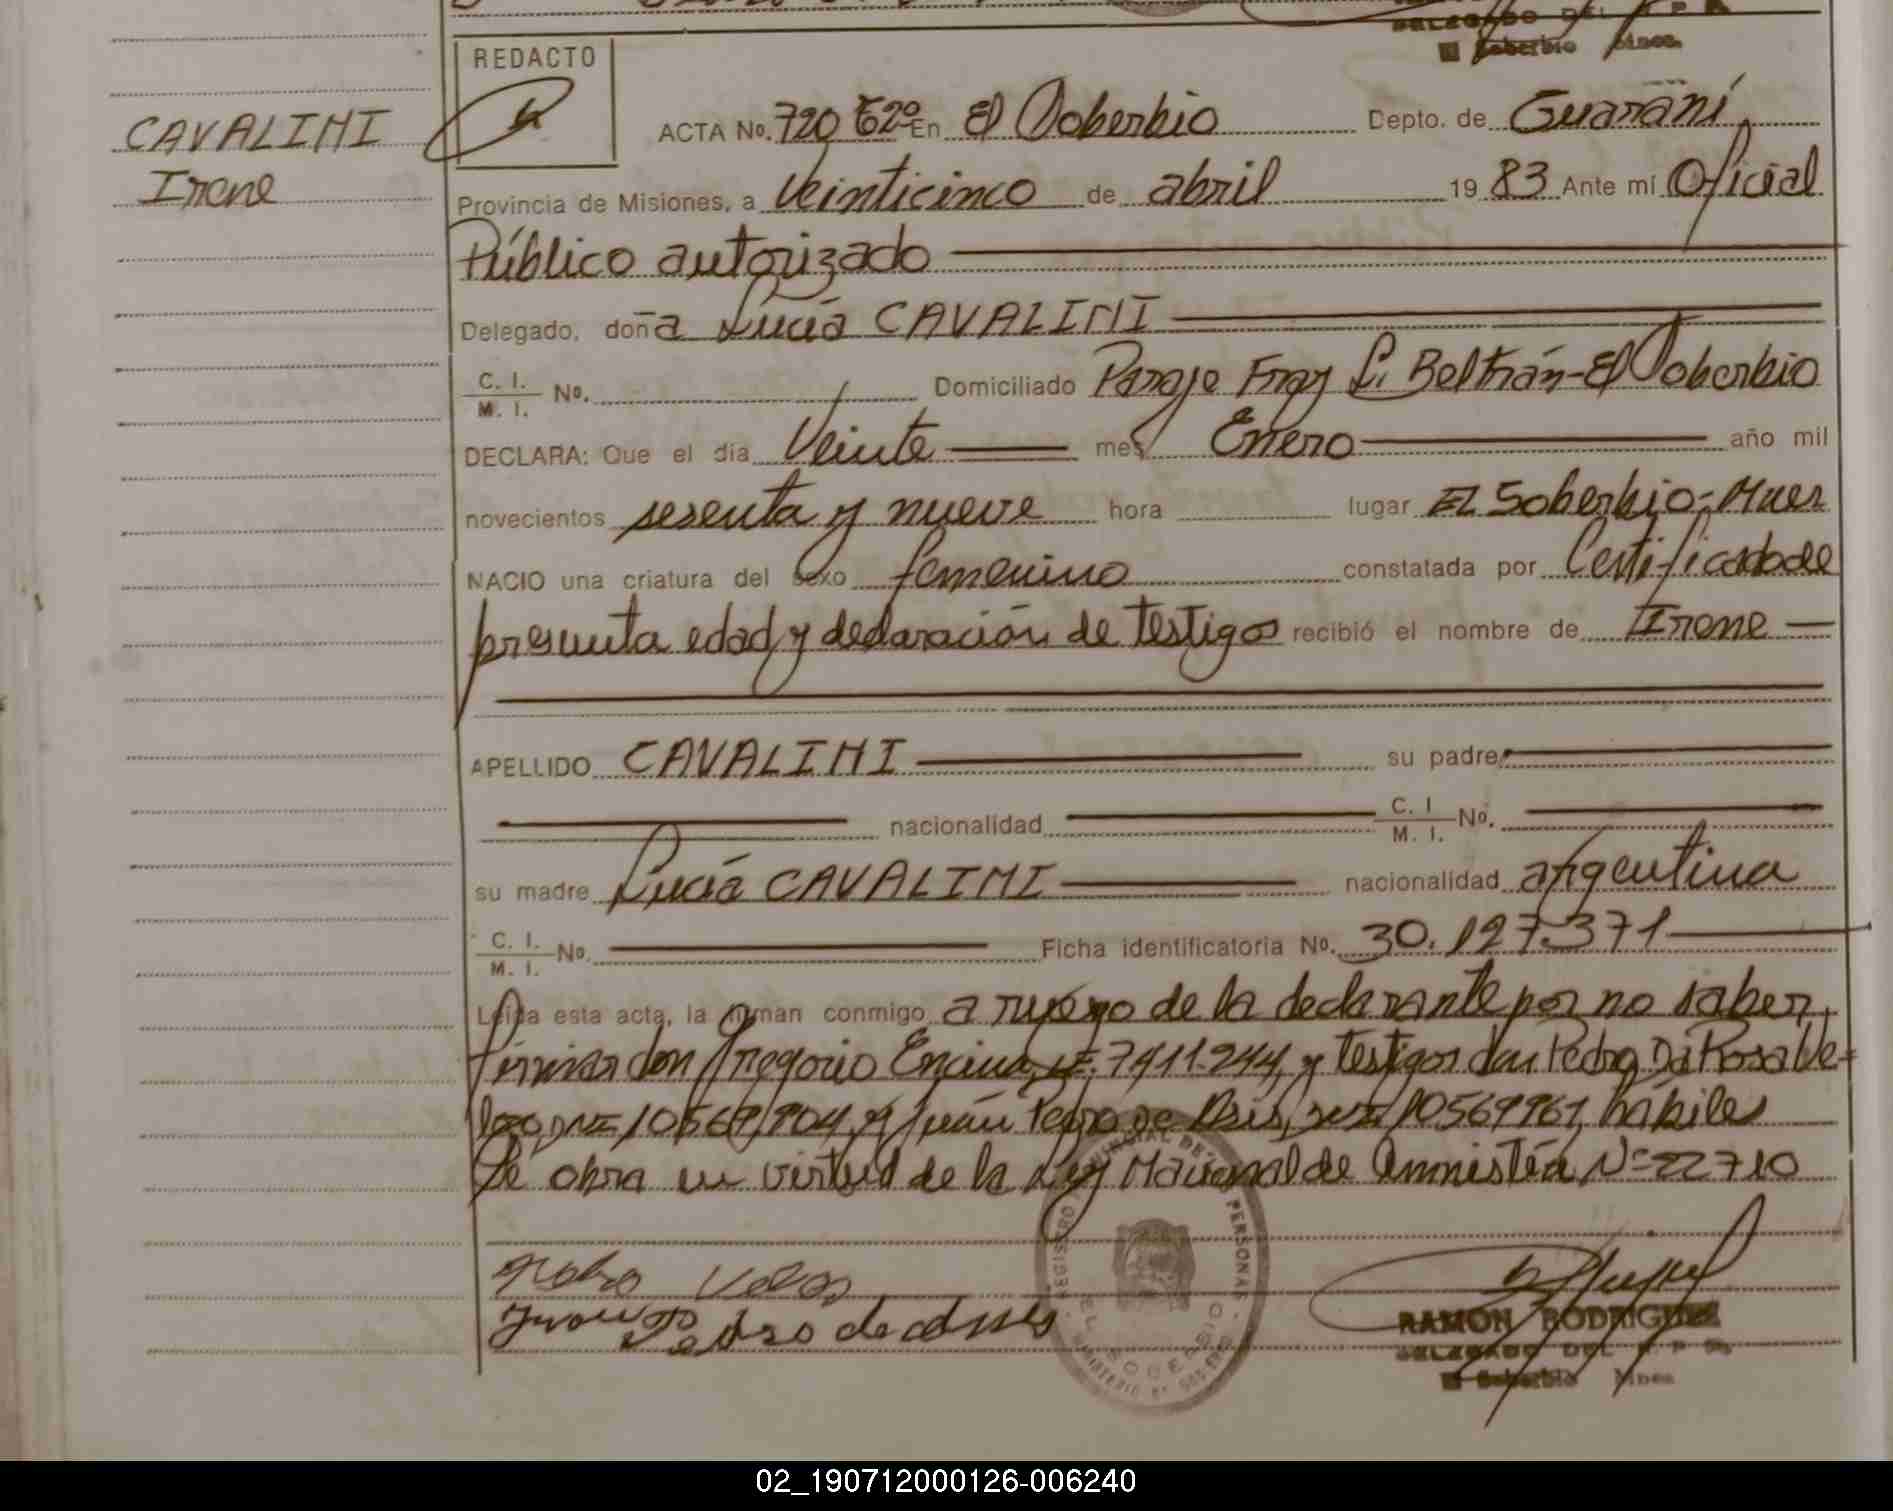 REDACTO
CAVALINI
Irene
ACTA No. 720 Tº 2º En El Soberbio Depto. de Guaraní
Provincia de Misiones, a Veinticinco de abril 19 83 Ante mí Oficial
Público autorizado
Delegado, doña Lucía CAVALINI
C. I.
M. I. No. Domiciliado Paraje Fray L. Beltrán-El Soberbio
DECLARA: Que el día Veinte mes Enero año mil
novecientos sesenta y nueve hora lugar El Soberbio-Mnes
NACIO una criatura del sexo femenino constatada por Certificado de
presunta edad y declaración de testigos recibió el nombre de Irene
APELLIDO CAVALINI su padre
nacionalidad C. I. M. I. No.
su madre Lucía CAVALINI nacionalidad argentina
C. I.
M. I. No. Ficha identificatoria No. 30.127.371
Leída esta acta, la firman conmigo a ruego de la declarante por no saber
firmar don Gregorio Encina, 7411.244, y testigos don Pedro Da Rosa Ve=
lozo, DNI y Juan Pedro de Asis, DNI 10569961, hábiles
Se obra en virtud de la Ley Nacional de Amnistía Nº 22710
Pedro
Juan Pedro de
REGISTRO PROVINCIAL DE PERSONAS
EL SOBERBIO
RAMON RODRIGUEZ
DELEGADO DEL R P P
El Soberbio Mnes.
02_190712000126-006240